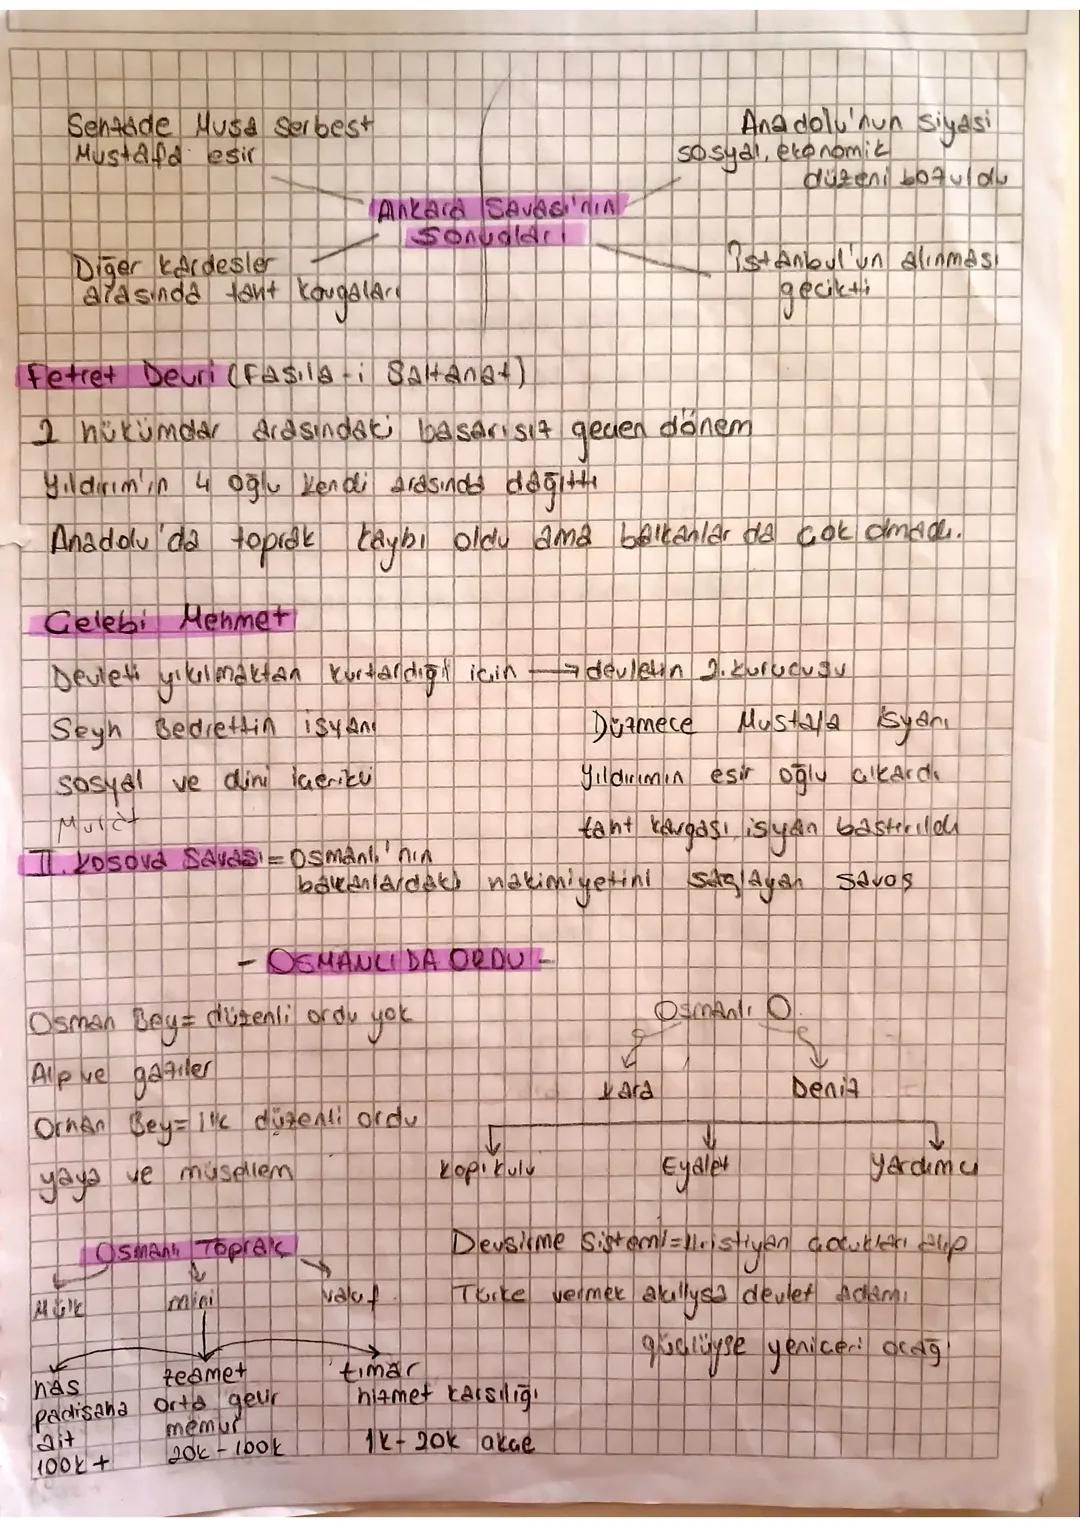 Şehzade Musa serbest
Mustafa esir
Anadolu'nun siyasi
sosyal, ekonomik
düzeni bozuldu
Ankara Savaşı'nın
Sonuçları
Diğer kardeşler
arasında taht kavgaları
İstanbul'un alınması
gecikti
Fetret Devri (Fasıla-i Saltanat)
2 hükümdar arasındaki başarısız geçen dönem
Yıldırım'ın 4 oğlu kendi arasında dağıttı
Anadolu'da toprak kaybı oldu ama balkanlar da çok olmadı.
Çelebi Mehmet
Devleti yıkılmaktan kurtardığı için → devletin 2. kurucusu
Şeyh Bedrettin isyanı
Düzmece Mustafa isyanı
sosyal ve dini içerikli
Yıldırımın esir oğlu çıkardı
Murat
taht kavgası isyan bastırıldı
II. Kosova Savaşı = Osmanlı'nın
balkanlardaki hakimiyetini sağlayan savaş
- OSMANLI DA ORDU -
Osman Bey = düzenli ordu yok
Alp ve gaziler
Orhan Bey = ilk düzenli ordu
yaya ve müsellem
Osmanlı O.
Kara
Deniz
Kapıkulu
Eyalet
Yardımcı
Osmanlı Toprak
Mülk
miri
vakıf
has
padişaha
ait
100k +
zeamet
orta gelir
memur
20k - 100k
tımar
hizmet karşılığı
1k - 20k akçe
Devşirme Sistemi = Hristiyan çocukları alıp
Türke vermek akıllıysa devlet adamı
güçlüyse yeniçeri ocağı